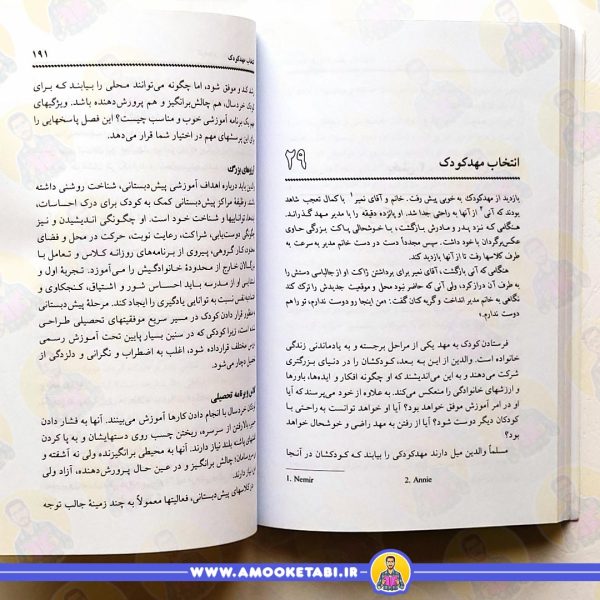 انتخاب مهدکودک
۲۹
بازدید از مهدکودک به خوبی پیش رفت. خانم و آقای نمیر۱ با کمال تعجب شاهد
بودند که آنی۲ از آنها به راحتی جدا شد. او پانزده دقیقه را با مدیر مهد گذراند.
هنگامی که نزد پدر و مادرش بازگشت، با خوشحالی پاکت بزرگی حاوی
عکس‌برگردان با خود داشت. سپس مجدداً دست در دست خانم مدیر به سرعت به
طرف کلاسها رفت تا از آنها بازدید کند.
هنگامی که آنی بازگشت، آقای نمیر برای برداشتن ژاکت او از جالباسی دستش را
به طرف آن دراز کرد، ولی آنی که حاضر نبود محل و موقعیت جدیدش را ترک کند
نگاهی به خانم مدیر انداخت و گریه کنان گفت: «من اینجا رو دوست ندارم، تو را هم
دوست ندارم.»
فرستادن کودک به مهد یکی از مراحل برجسته و به یادماندنی زندگی
خانواده است. والدین از این به بعد، کودکشان را در دنیای بزرگتری
شرکت می‌دهند و به این می‌اندیشند که او چگونه افکار و ایده‌ها، باورها
و ارزشهای خانوادگی را منعکس می‌کند. به علاوه از خود می‌پرسند که آیا
او در امر آموزش موفق خواهد بود؟ آیا او خواهد توانست به راحتی با
کودکان دیگر دوست شود؟ آیا از رفتن به مهد راضی و خوشحال خواهد
بود؟
مسلماً والدین میل دارند مهدکودکی را بیابند که کودکشان در آنجا
1. Nemir 2. Annie
انتخاب مهدکودک ۱۹۱
رشد کند و موفق شود، اما چگونه می‌توانند محلی را بیابند که برای
کودک خردسال، هم چالش‌برانگیز و هم پرورش‌دهنده باشد. ویژگیهای
مهم یک برنامه آموزشی خوب و مناسب چیست؟ این فصل پاسخهایی را
برای این پرسشهای مهم در اختیار شما قرار می‌دهد.
آرزوهای بزرگ
والدین باید درباره اهداف آموزشی پیش‌دبستانی، شناخت روشنی داشته
باشند. وظیفهٔ مراکز پیش‌دبستانی کمک به کودک برای درک احساسات،
تواناییها و شناخت خود است. او چگونگی اندیشیدن و نیز
چگونگی دوست‌یابی، شراکت، رعایت نوبت، حرکت در محل و فضای
کار گروهی، پیروی از برنامه‌های روزانه کلاس و تعامل با
بزرگسالان خارج از محدودهٔ خانوادگیش را می‌آموزد. تجربهٔ اول و
او از مدرسه باید احساس شور و اشتیاق، کنجکاوی و
نفس نسبت به توانایی یادگیری را ایجاد کند. مرحلهٔ پیش‌دبستانی
قرار دادن کودک در مسیر سریع موفقیتهای تحصیلی طراحی
زیرا کودکی که در سنین بسیار پایین تحت آموزش رسمی
قرار داده شود، اغلب به اضطراب و نگرانی و دلزدگی از
تحصیل دچار می‌شود.
برنامه تحصیلی
کودکان خردسال با انجام دادن کارها آموزش می‌بینند. آنها به فشار دادن
بالارفتن از سرسره، ریختن چسب روی دستهایشان و به پا کردن
کفشهای پاشنه بلند نیاز دارند. آنها به محیطی برانگیزنده ولی نه آشفته و
چالش برانگیز و در عین حال پرورش‌دهنده، آزاد ولی
نیاز دارند.
در کلاسهای پیش‌دبستانی، فعالیتها معمولاً به چند زمینهٔ جالب توجه
WWW.AMOOKETABI.IR